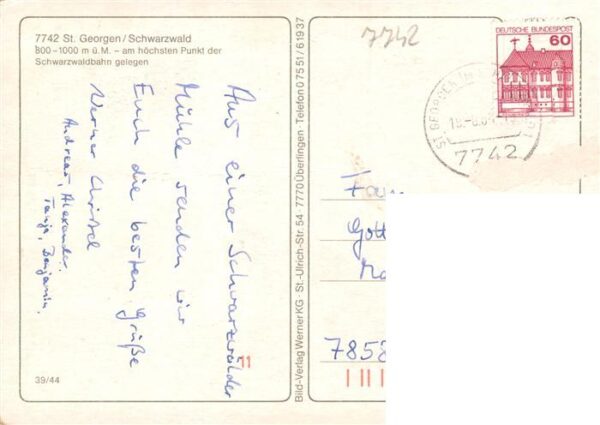 7742 St. Georgen / Schwarzwald
800–1000 m ü. M. – am höchsten Punkt der
Schwarzwaldbahn gelegen
Aus einer Schwarzwälder
Mühle senden wir
Euch die besten Grüße
Werner Christel
Andreas, Alexander
Tanja, Benjamin,
39/44
Bild-Verlag Werner KG · St.-Ulrich-Str. 54 · 7770 Überlingen · Telefon 0 75 51 / 6 19 37
7742
DEUTSCHE BUNDESPOST
60
ST. GEORGEN
7742
Fam
Gott
7858